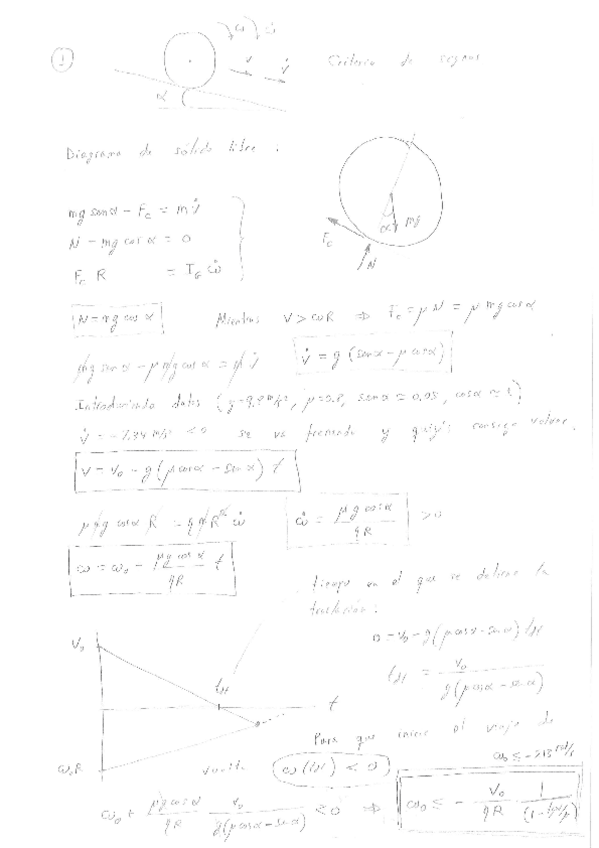 1
ω ω̇
V V̇
Criterio de signos
α
Diagrama de sólido libre.
mg senα - Fc = m V̇
N - mg cos α = 0
Fc R = I_G ω̇
α mg
Fc
N
N = mg cos α
Mientras V > ωR ⇒ Fc = μN = μ mg cos α
mg sen α - μ mg cos α = m V̇
V̇ = g (senα - μ cosα)
Introduciendo datos (g = 9,8 m/s², μ = 0.8, senα ≈ 0,05, cosα ≈ 1)
V̇ = -7,34 m/s² < 0 se va frenando y quizás consiga volver.
V = V₀ - g(μ cosα - sen α) t
μ mg cosα R = q m R² ω̇
ω̇ = μ g cos α / qR > 0
ω = ω₀ - μ g cos α / qR t
tiempo en el que se detiene la
traslación:
0 = V₀ - g(μ cosα - senα) t
t = V₀ / g(μ cosα - senα)
V₀
t
ω₀R
Para que inicie el viaje de
vuelta
ω₀ + μ g cosα / qR V₀ / g(μ cosα - senα) < 0 ⇒ ω₀ ≤ - V₀ / qR